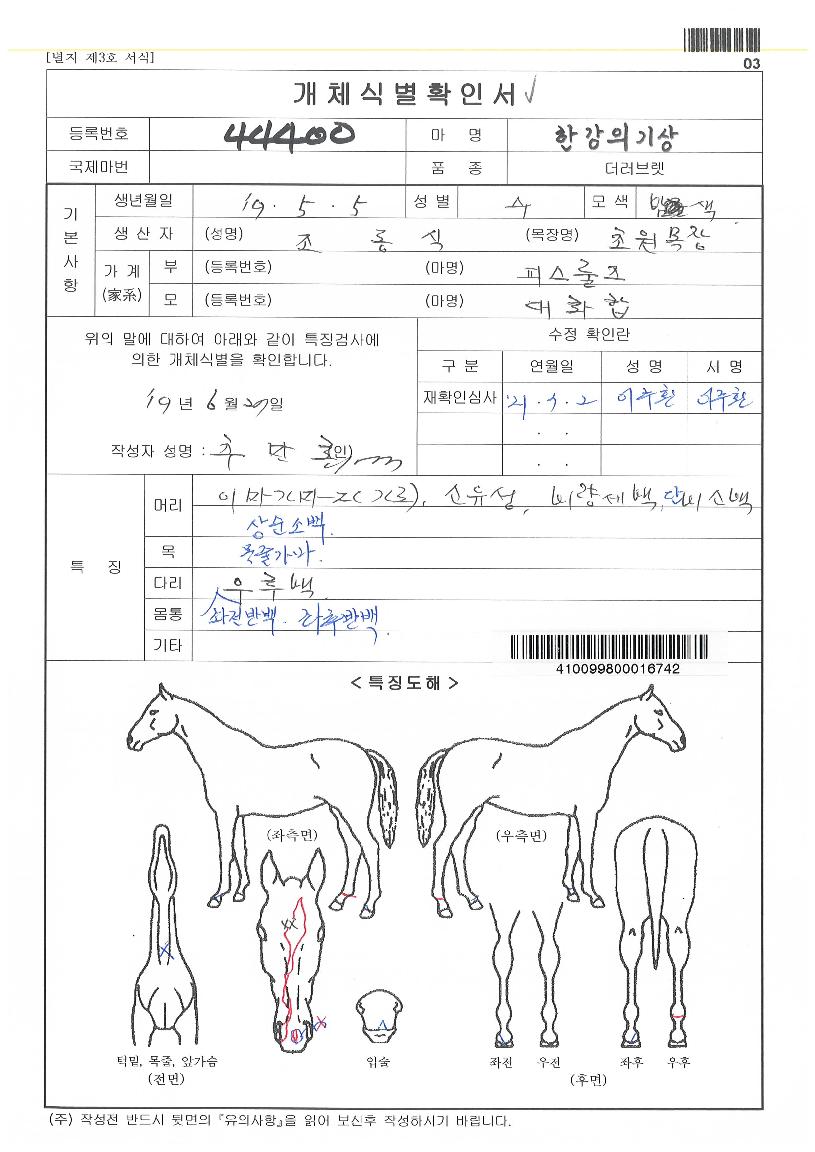 [별지 제3호 서식]
03
개체식별확인서
등록번호 44400 마 명 한강의기상
국제마번 품 종 더러브렛
기본사항
생년월일 19. 5. 5 성별 수 모색 색
생 산 자 (성명) 조 롱 식 (목장명) 초원목장
가 계 (家系) 부 (등록번호) (마명) 피스룰즈
모 (등록번호) (마명) 대화합
위의 말에 대하여 아래와 같이 특징검사에
의한 개체식별을 확인합니다.
'19 년 6 월 20 일
작성자 성명 : (인)
수정 확인란
구 분 연월일 성 명 시 명
재확인심사 '21. . 2 이주환 이주환
. .
. .
특 징
머리 신유성, 비량세백, 단비소백
상순소백.
목 목줄가마.
다리 우후백
몸통 좌전반백. 좌후반백.
기타
410099800016742
< 특징도해 >
(좌측면) (우측면)
턱밑, 목줄, 앞가슴 입술 좌전 우전 좌후 우후
(전면) (후면)
(주) 작성전 반드시 뒷면의 『유의사항』을 읽어 보신후 작성하시기 바랍니다.